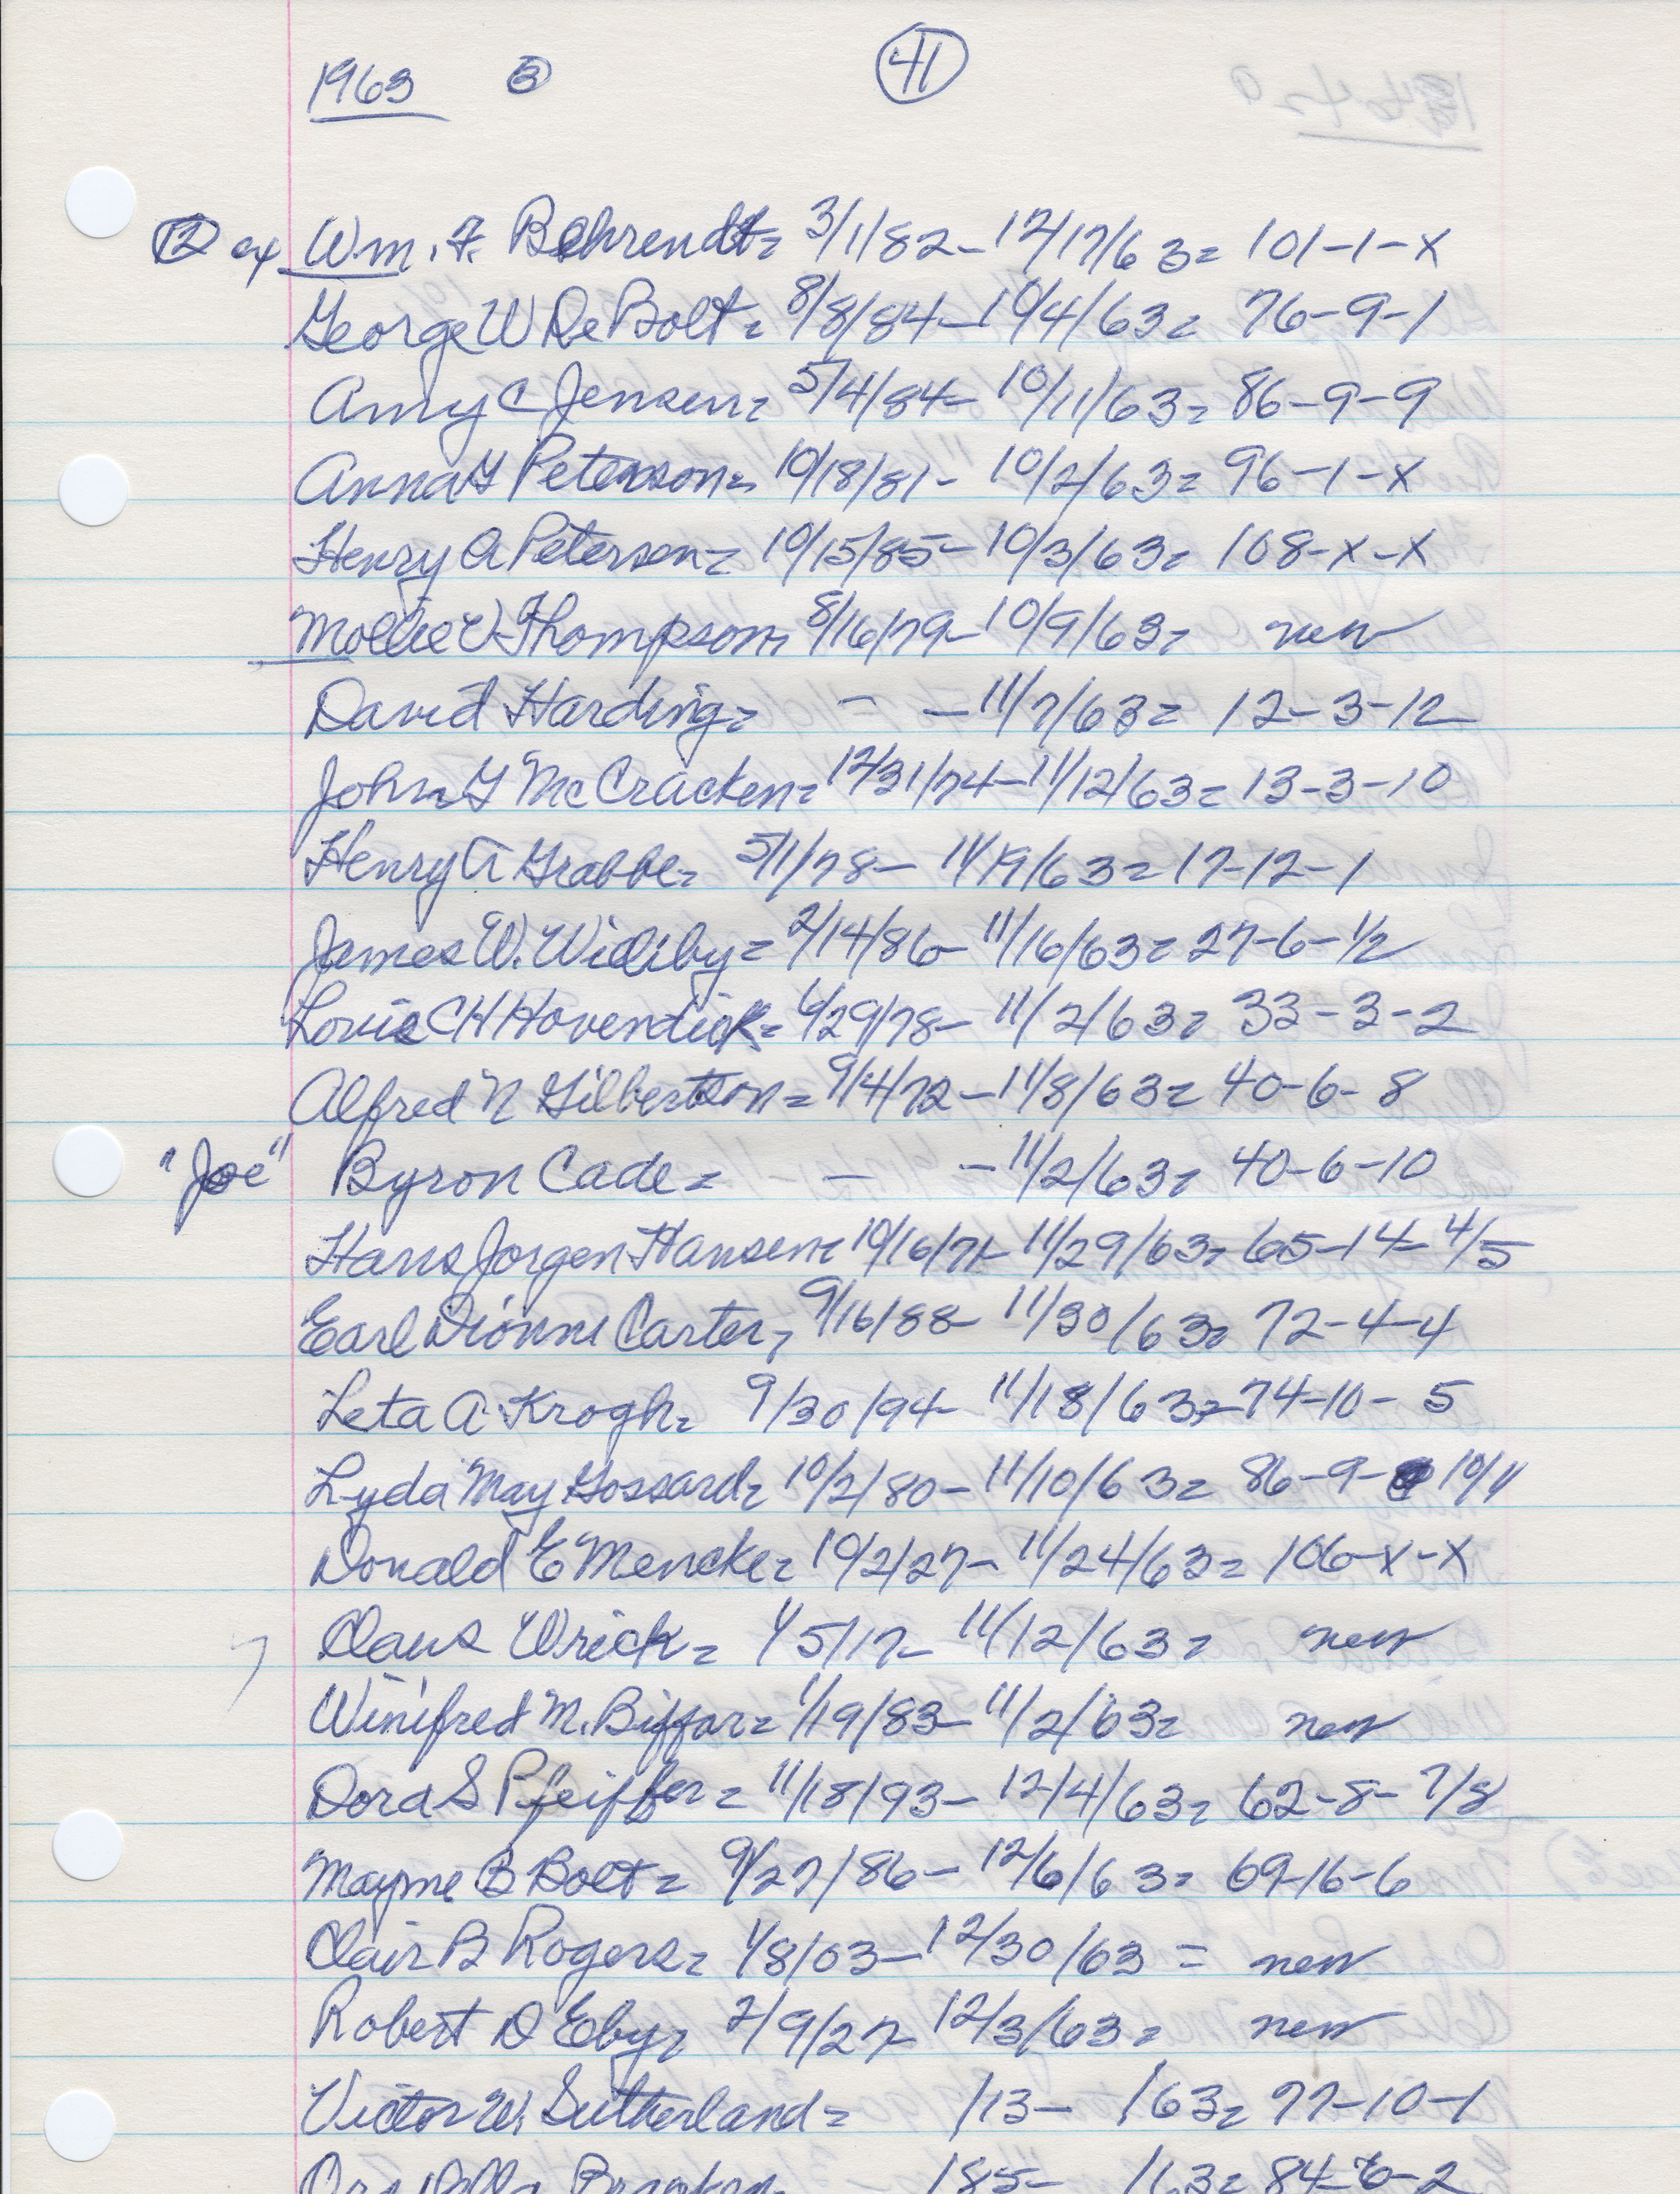 1963 ③ 41
12 ex Wm. F. Behrendt = 3/1/82 - 12/17/63 = 101-1-x
George W DeBolt = 8/8/84 - 10/4/63 = 76-9-1
Amy C Jensen = 5/4/84 - 10/11/63 = 86-9-9
Anna G Peterson = 10/18/81 - 10/2/63 = 96-1-x
Henry A Petersen = 10/15/85 - 10/3/63 = 108-x-x
Mollie V Thompson = 8/16/79 - 10/9/63 = new
David Harding = - - 11/7/63 = 12-3-12
John G McCracken = 12/31/74 - 11/12/63 = 13-3-10
Henry A Grabbe = 5/1/78 - 11/19/63 = 17-12-1
James W. Widiby = 2/14/86 - 11/16/63 = 27-6-1/2
Louis CH Hovendick = 6/29/78 - 11/2/63 = 33-3-2
Alfred N Gilbertson = 9/4/72 - 11/8/63 = 40-6-8
"Joe" Byron Cade = - - 11/2/63 = 40-6-10
Hans Jorgen Hansen = 10/16/71 - 11/29/63 = 65-14-4/5
Earl Dionne Carter = 9/16/88 - 11/30/63 = 72-4-4
Leta A. Krogh = 9/30/94 - 11/18/63 = 74-10-5
Lyda May Gossard = 10/2/80 - 11/10/63 = 86-9-10/11
Donald E Mencke = 10/2/27 - 11/24/63 = 106-x-x
Claus Wrick = 1/5/17 - 11/12/63 = new
Winifred M. Biffar = 1/19/83 - 11/2/63 = new
Dora S Pfeiffer = 11/18/93 - 12/4/63 = 62-8-7/8
Mayme B Bolt = 9/27/86 - 12/6/63 = 69-16-6
Clair B Rogers = 1/8/03 - 12/30/63 = new
Robert D Eby = 2/9/27 - 12/3/63 = new
Victor W. Sutherland = /13 - /63 = 77-10-1
Ora Della /85 - /63 = 84-6-2